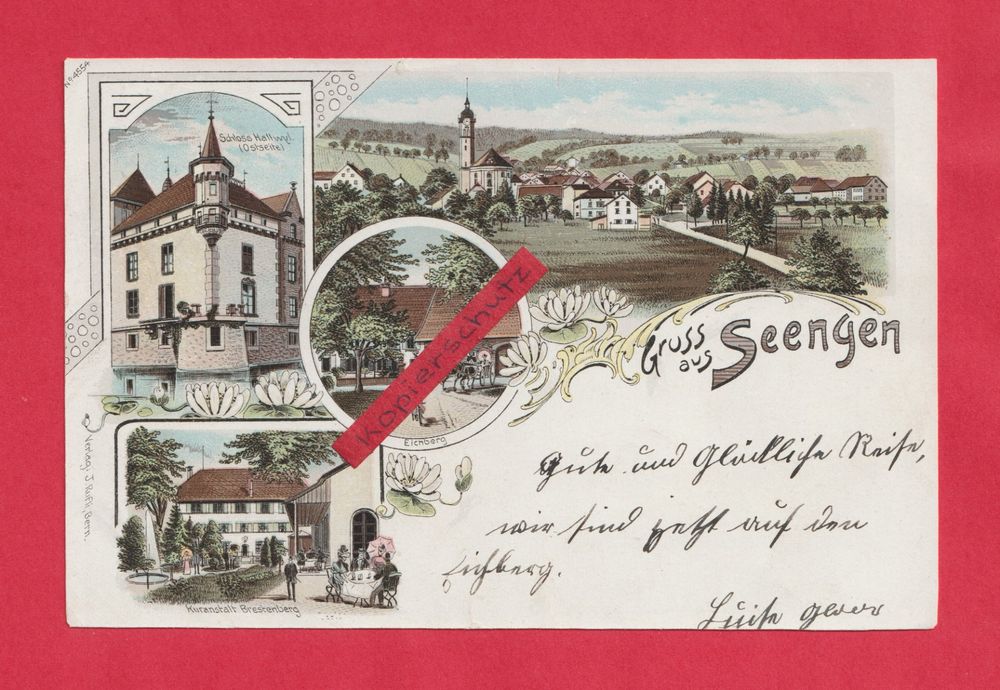 No 4554
Schloss Hallwyl.
(Ostseite)
Gruss
aus
Seengen
Kopierschutz
Eichberg
Kuranstalt Brestenberg
Verlag J. Bern.
Gute und Glückliche Reise,
wir sind jetzt auf den
Eichberg.
Luise Gloor